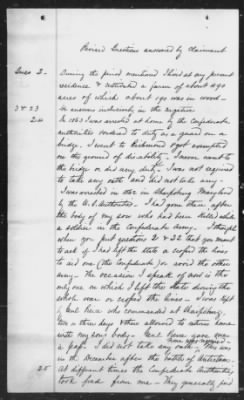 6 6
Revised Questions answered by Claimant
Ques 2- During the period mentioned I lived at my present
residence & cultivated a farm of about 290
acres of which about 190 was in wood—
3 & 23 He answers inclusively in the negative
24 In 1863 I was arrested at home by the Confederate
authorities ordered to duty as a guard on a
bridge. I went to Richmond & got exempted
on the ground of disability. I never went to
the bridge or did any duty. I was not required
to take any oath and did not take any.
I was arrested in Sharpsburg Maryland
by the U.S. Authorities. I had gone there after
the body of my son who had been killed while
a soldier in the Confederate Army. I thought
when you put questions 2 & 22 that you meant
to ask if I had left the state or crossed the lines
to aid one (the Confederate) or avoid the other
army. The occasion I speak of now is the
only one in which I left the State during the
whole war or crossed the lines. I was kept
by Genl. who commanded at Sharpsburg
two or three days & then allowed to return home
with my son's body. Genl. gave me
a pass. I did not take any oath. This was
in the December after the battle of Antietam.
25 At different times the Confederate Authorities
took food from me — they generally paid